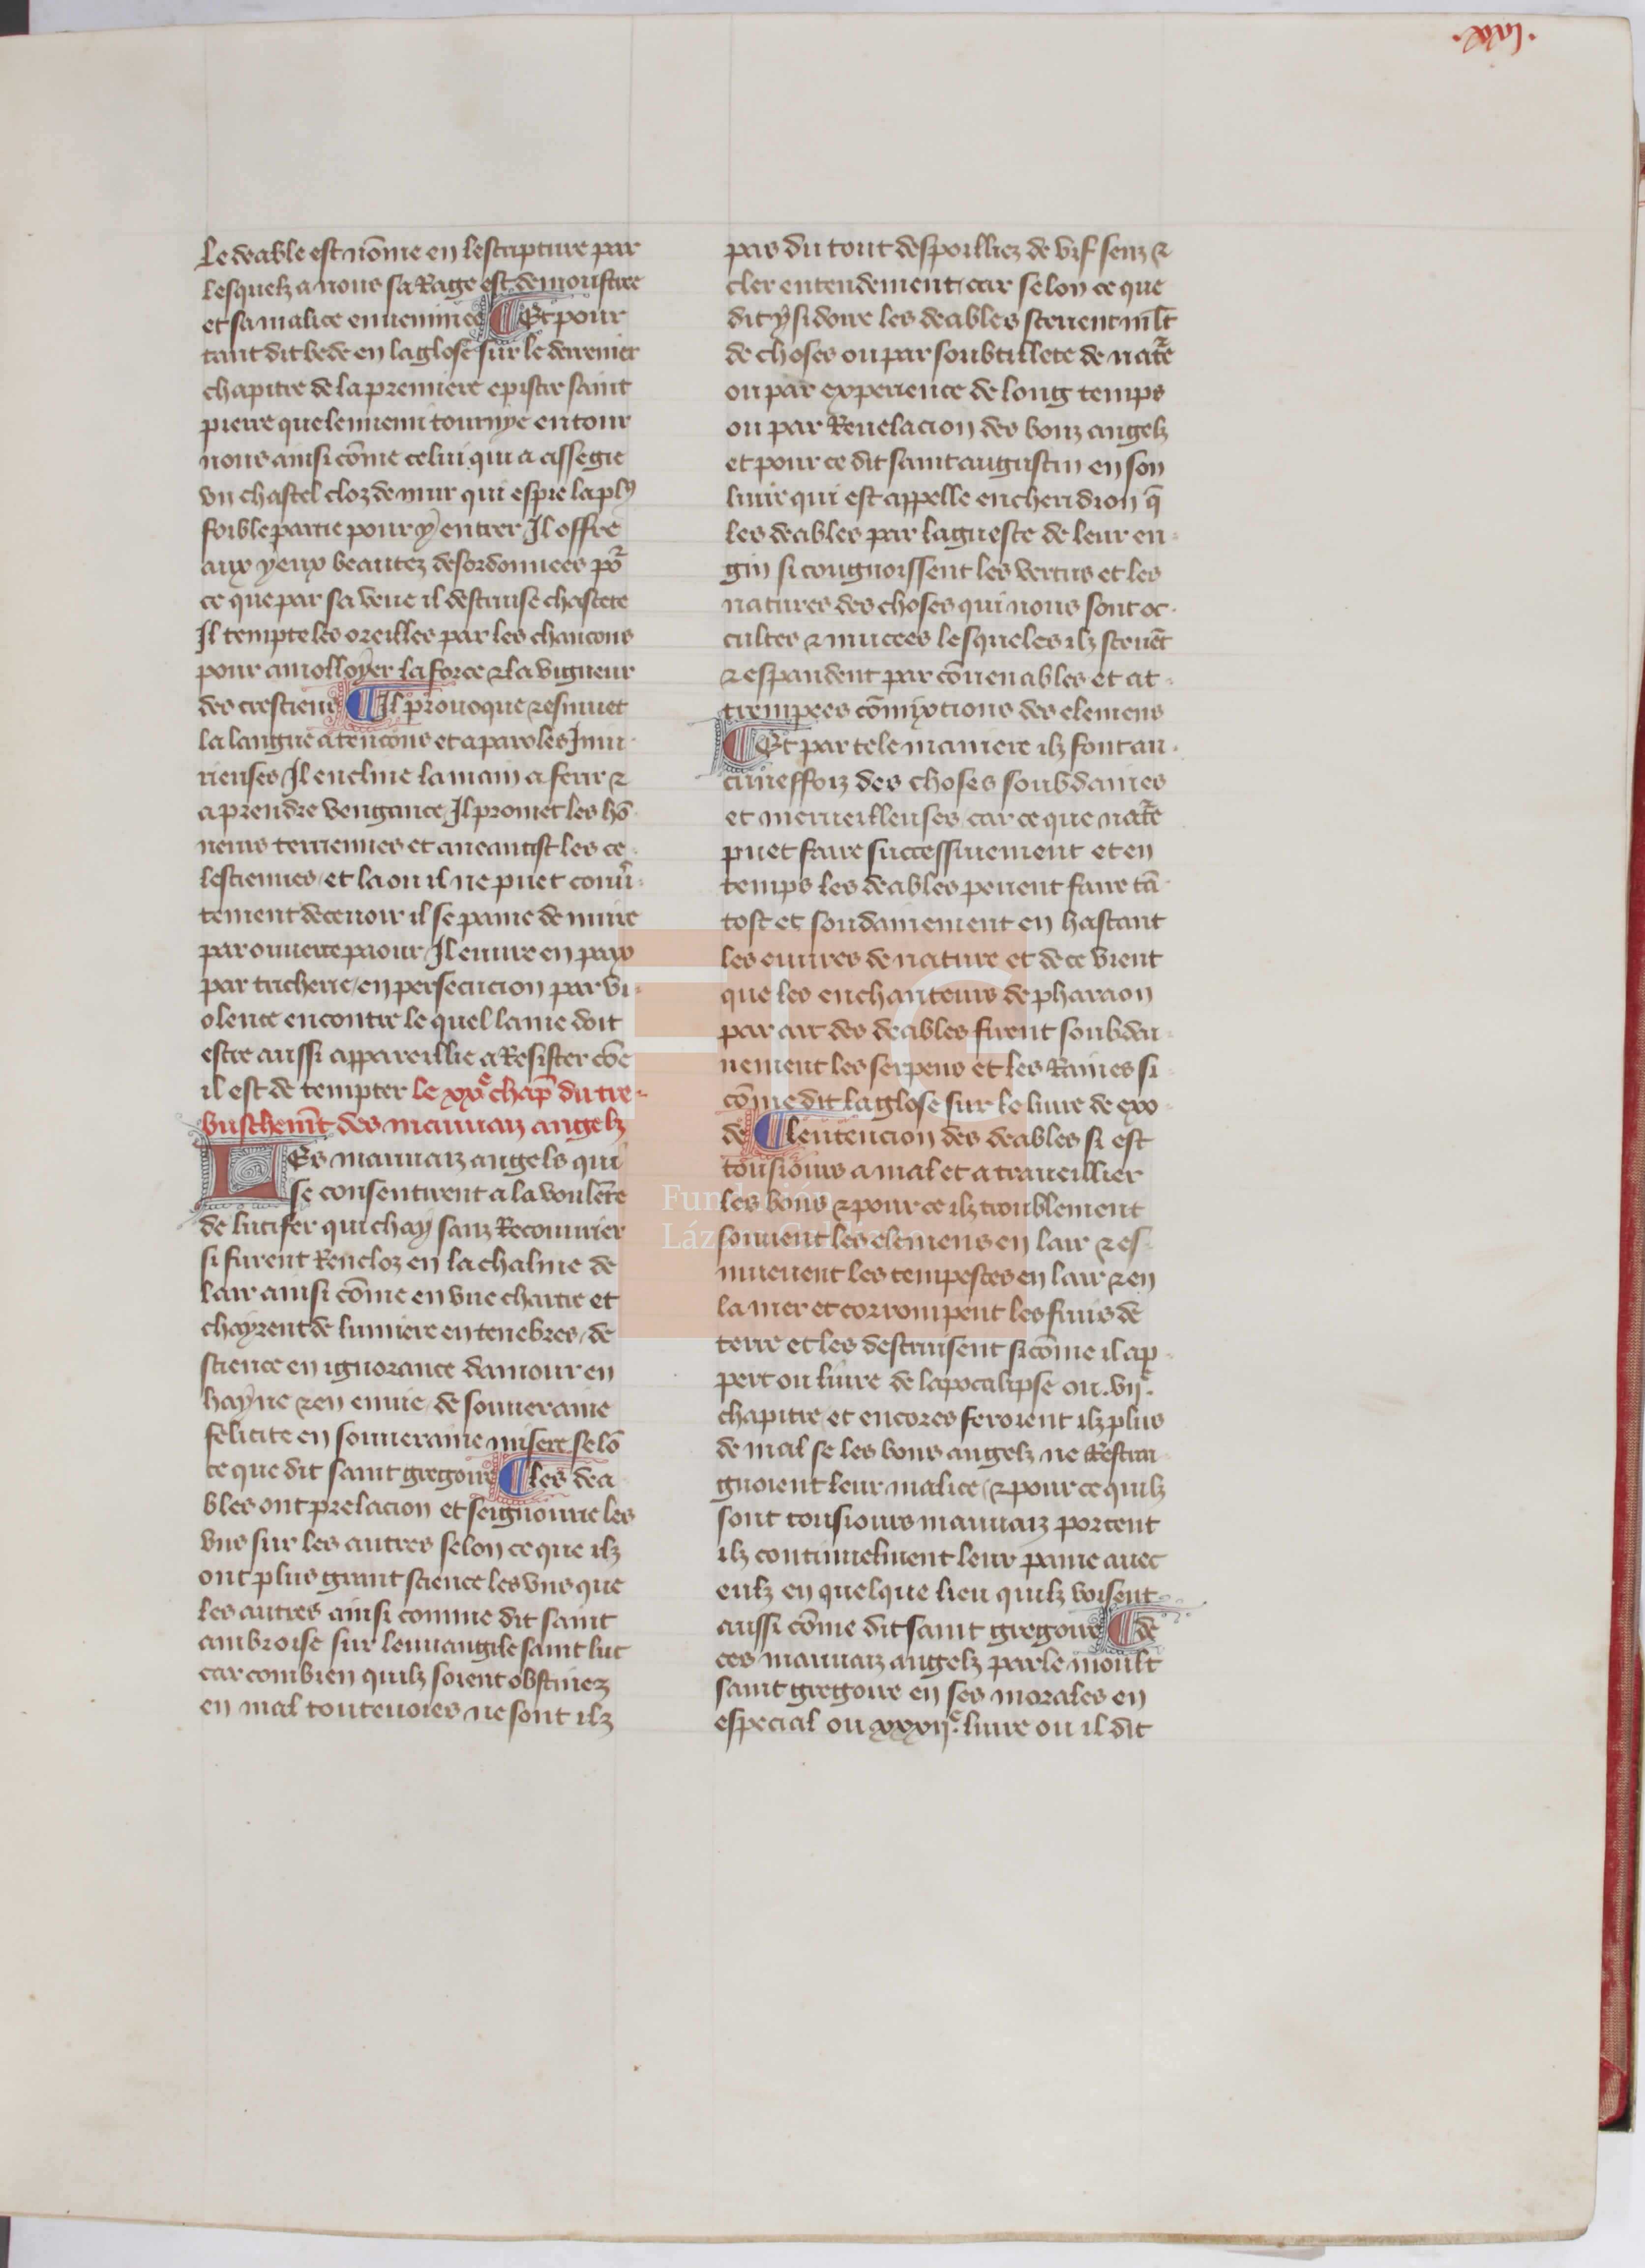 Le deable est nõme en lescripture par
lesquelz a nous sa Rage est demonstree
et sa malice enuenimee Et pour
tant dit bede en la glose sur le derrenier
chapitre de la premiere epistre saint
pierre que lennemi tournye entour
nous ainsi cõme celui qui a assegie
vn chastel cloz de mur qui espie la plꝰ
foible partie pour y entrer Il offre
aux yeux beautez desordonnees po᷑
ce que par sa veue il destruise chastete
Il tempte les oreilles par les chancons
pour amolloyer la force ⁊ la vigueur
des crestiens Il prouoque ⁊ esmuet
la langue a tencons et a paroles Iniu
rieuses Il encline la main a ferir ⁊
a prendre vengance Il promet les hõ
neurs terriennes et aneantist les ce
lestiennes / et la ou il ne puet couu͛
tement deceuoir il se paine de nuire
par ouuerte paour Il euure en paix
par tricherie / en persecucion par vi
olence encontre le quel lame doit
estre aussi appareillie a Resister cõe
il est de tempter le xxͤ chap̃ du tre
buschem̃t des mauuaiz angelz
LEs mauuaiz angels qui
se consentirent a la voulẽte
de lucifer qui chay sanz Recouurier
si furent Rencloz en la chalme de
lair ainsi cõme en vne chartre et
chayrent de lumiere en tenebres / de
science en ignorance damour en
hayne ⁊ en enuie / de souueraine
felicite en souueraine misere selõ
ce que dit saint gregoire les dea
bles ont prelacion et seignourie les
vns sur les autres selon ce que ilz
ont plus grant science les vns que
les autres ainsi comme dit saint
ambroise sur leuuangile saint luc
car combien quilz soient obstinez
en mal toutenoies ne sont ilz
pas du tout despoilliez de vif senz ⁊
cler entendement / car selon ce que
dit ysidoire les deables sceuent ml̃t
de choses ou par soubtillete de nat᷑e
ou par experience de long temps
ou par Reuelacion des bonz angelz
et pour ce dit saint augustin en son
liure qui est appelle encheridion q̃
les deables par laguesce de leur en
gin si congnoissent les vertus et les
natures des choses qui nous sont oc
cultes ⁊ mucees lesqueles ilz sceuẽt
⁊ espandent par cõuenables et at
trempees cõmixtions des elemens
Et par tele maniere ilz font au
cuneffoiz des choses soubdaines
et merueilleuses / car ce que nat᷑e
puet faire successiuement et en
temps les deables peuent faire tã
tost et soudainement en hastant
les euures de nature et de ce vient
que les enchanteurs de pharaon
par art des deables firent soubdai
nement les serpens et les Raines si
cõme dit la glose sur le liure de exo
de lentencion des deables si est
tousiours a mal et a traueillier
les bons ⁊ pour ce ilz troublement
souuent les elemens en lair ⁊ es
muuent les tempestes en lair ⁊ en
la mer et corrompent les fruis de
terre et les destruisent si cõme il ap
pert ou liure de lapocalipse ou .vijͤ.
chapitre / et encores feroient ilz plus
de mal se les bons angelz ne Restrai
gnoient leur malice / ⁊ pour ce quilz
sont tousiours mauuaiz portent
ilz continuelment leur paine auec
eulz en quelque lieu quilz voisent
aussi cõme dit saint gregoire de
ces mauuaiz angelz parle moult
saint gregoire en ses morales en
especial ou xxxijͤ. liure ou il dit
Fundación